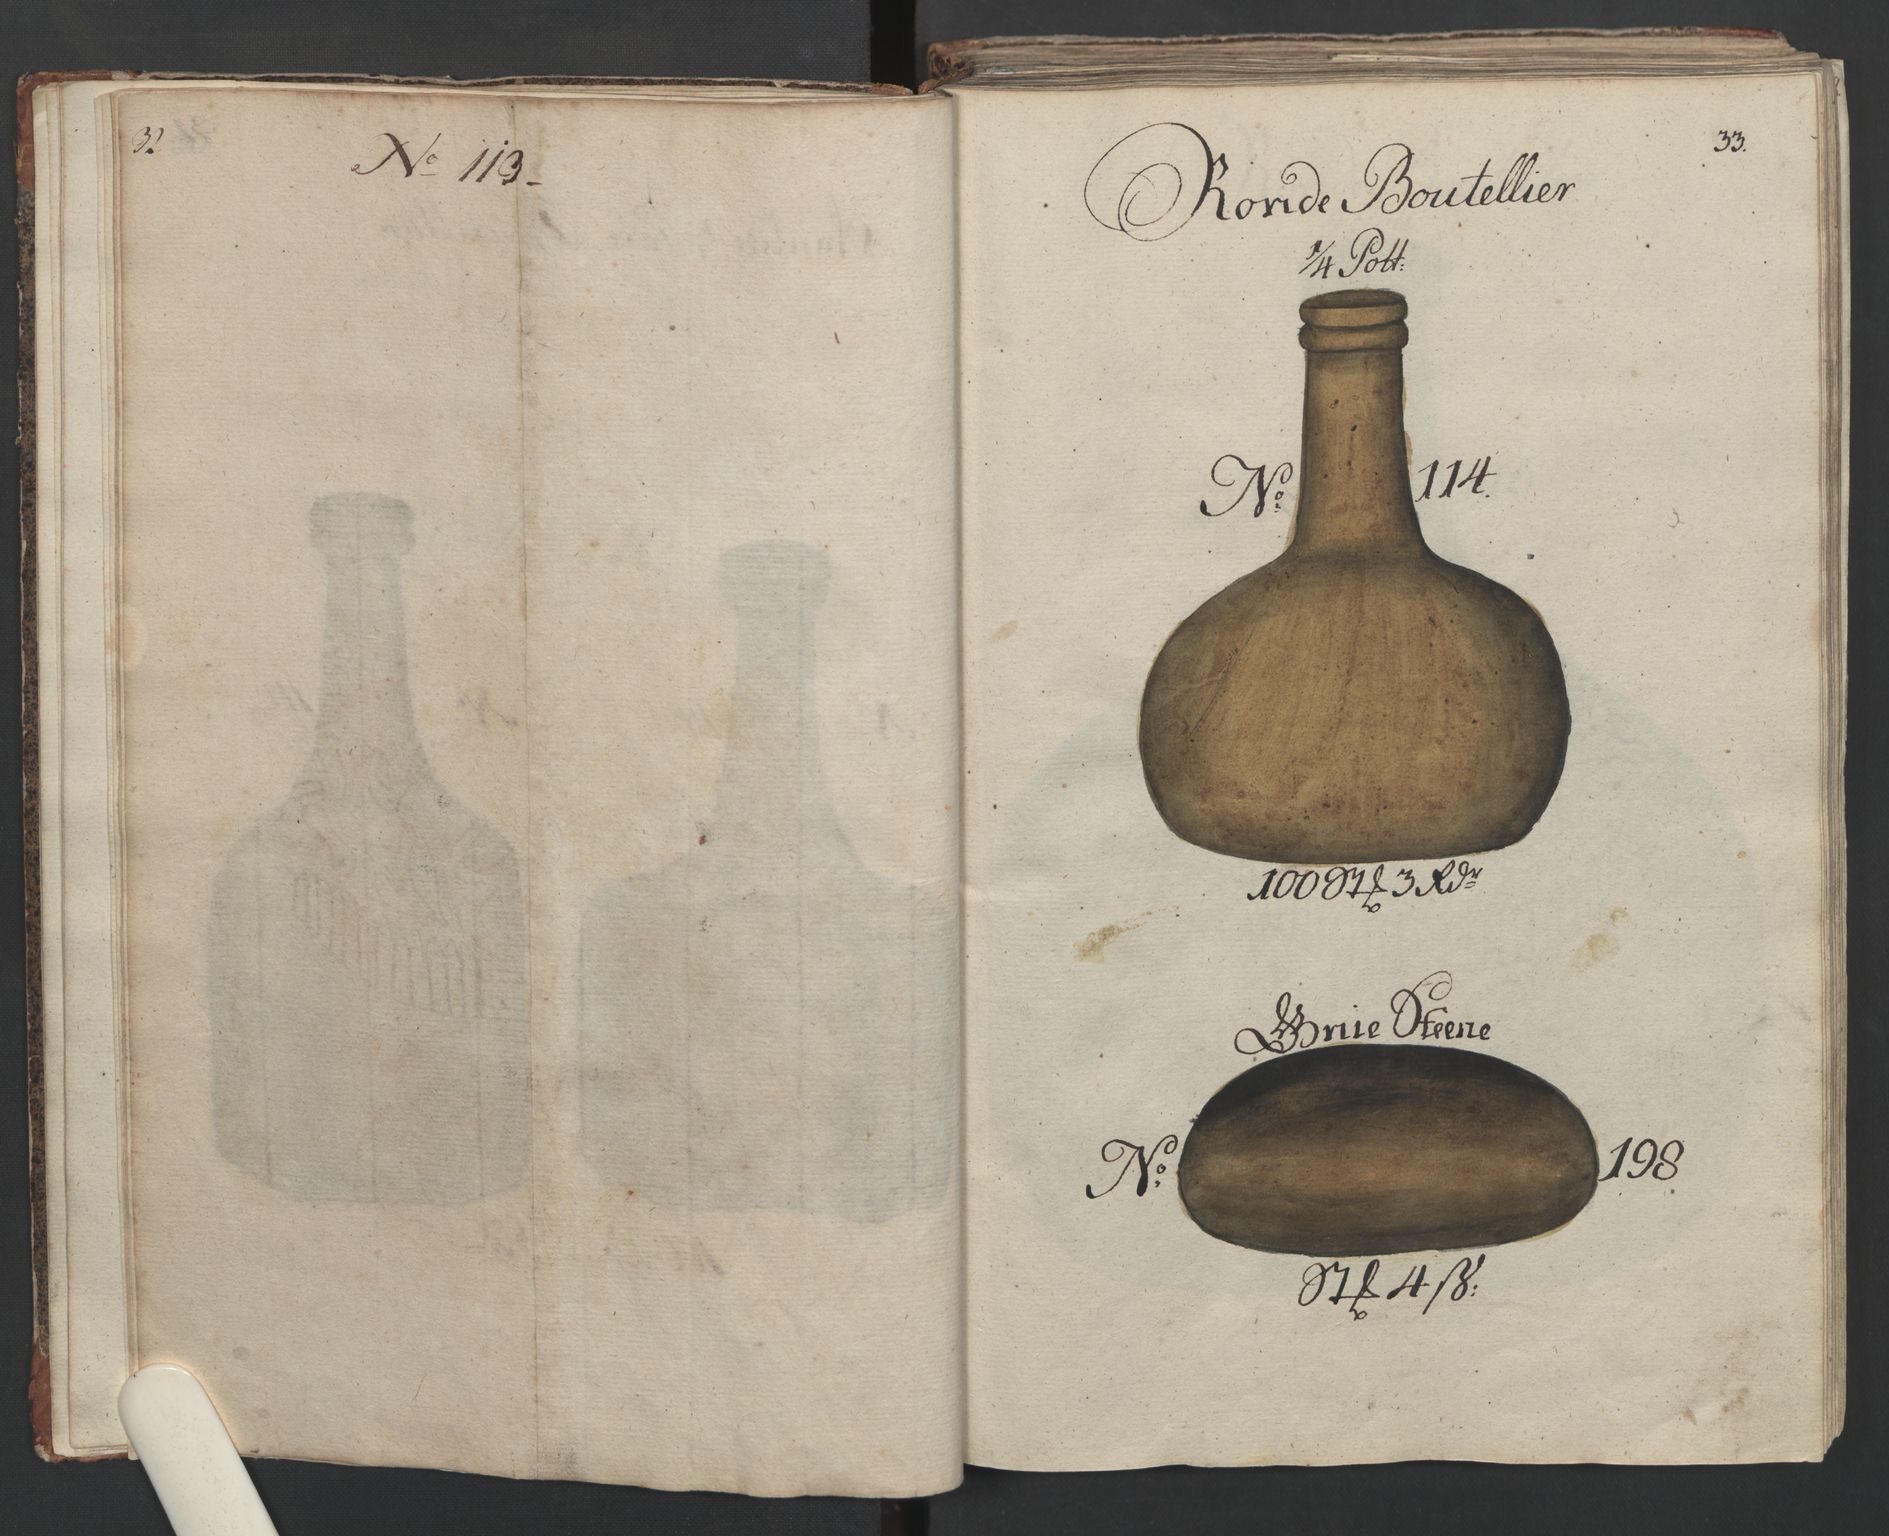 32
No 113
33.
Ronde Boutellier
1/4 Pott:
No: 114.
100 St a 3 Rdr
Gnie Steene
No: 198
St a 4 ß: